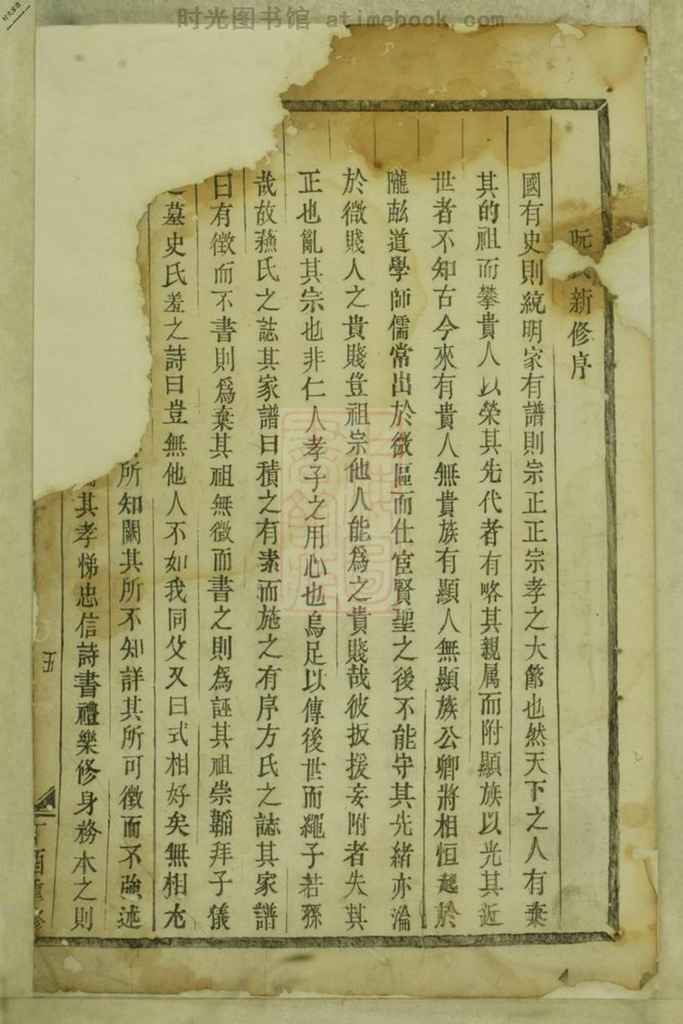 时光图书馆 atimebook.com
新修序
國有史則統明家有譜則宗正正宗孝之大節也然天下之人有棄
其的祖而攀貴人以榮其先代者有略其親属而附顯族以光其近
世者不知古今來有貴人無貴族有顯人無顯族公卿將相恒起於
隴畝道學師儒常出於微區而仕宦賢聖之後不能守其先緒亦淪
於微賤人之貴賤豈祖宗他人能爲之貴賤哉彼扳援妄附者失其
正也亂其宗也非仁人孝子之用心也烏足以傳後世而繩子若孫
哉故蘓氏之誌其家譜曰積之有素而施之有序方氏之誌其家譜
曰有徵而不書則爲棄其祖無徵而書之則爲誣其祖崇韜拜子儀
之墓史氏羞之詩曰豈無他人不如我同父又曰式相好矣無相尤
所知闕其所不知詳其所可徵而不強述
其孝悌忠信詩書禮樂修身務本之則
五